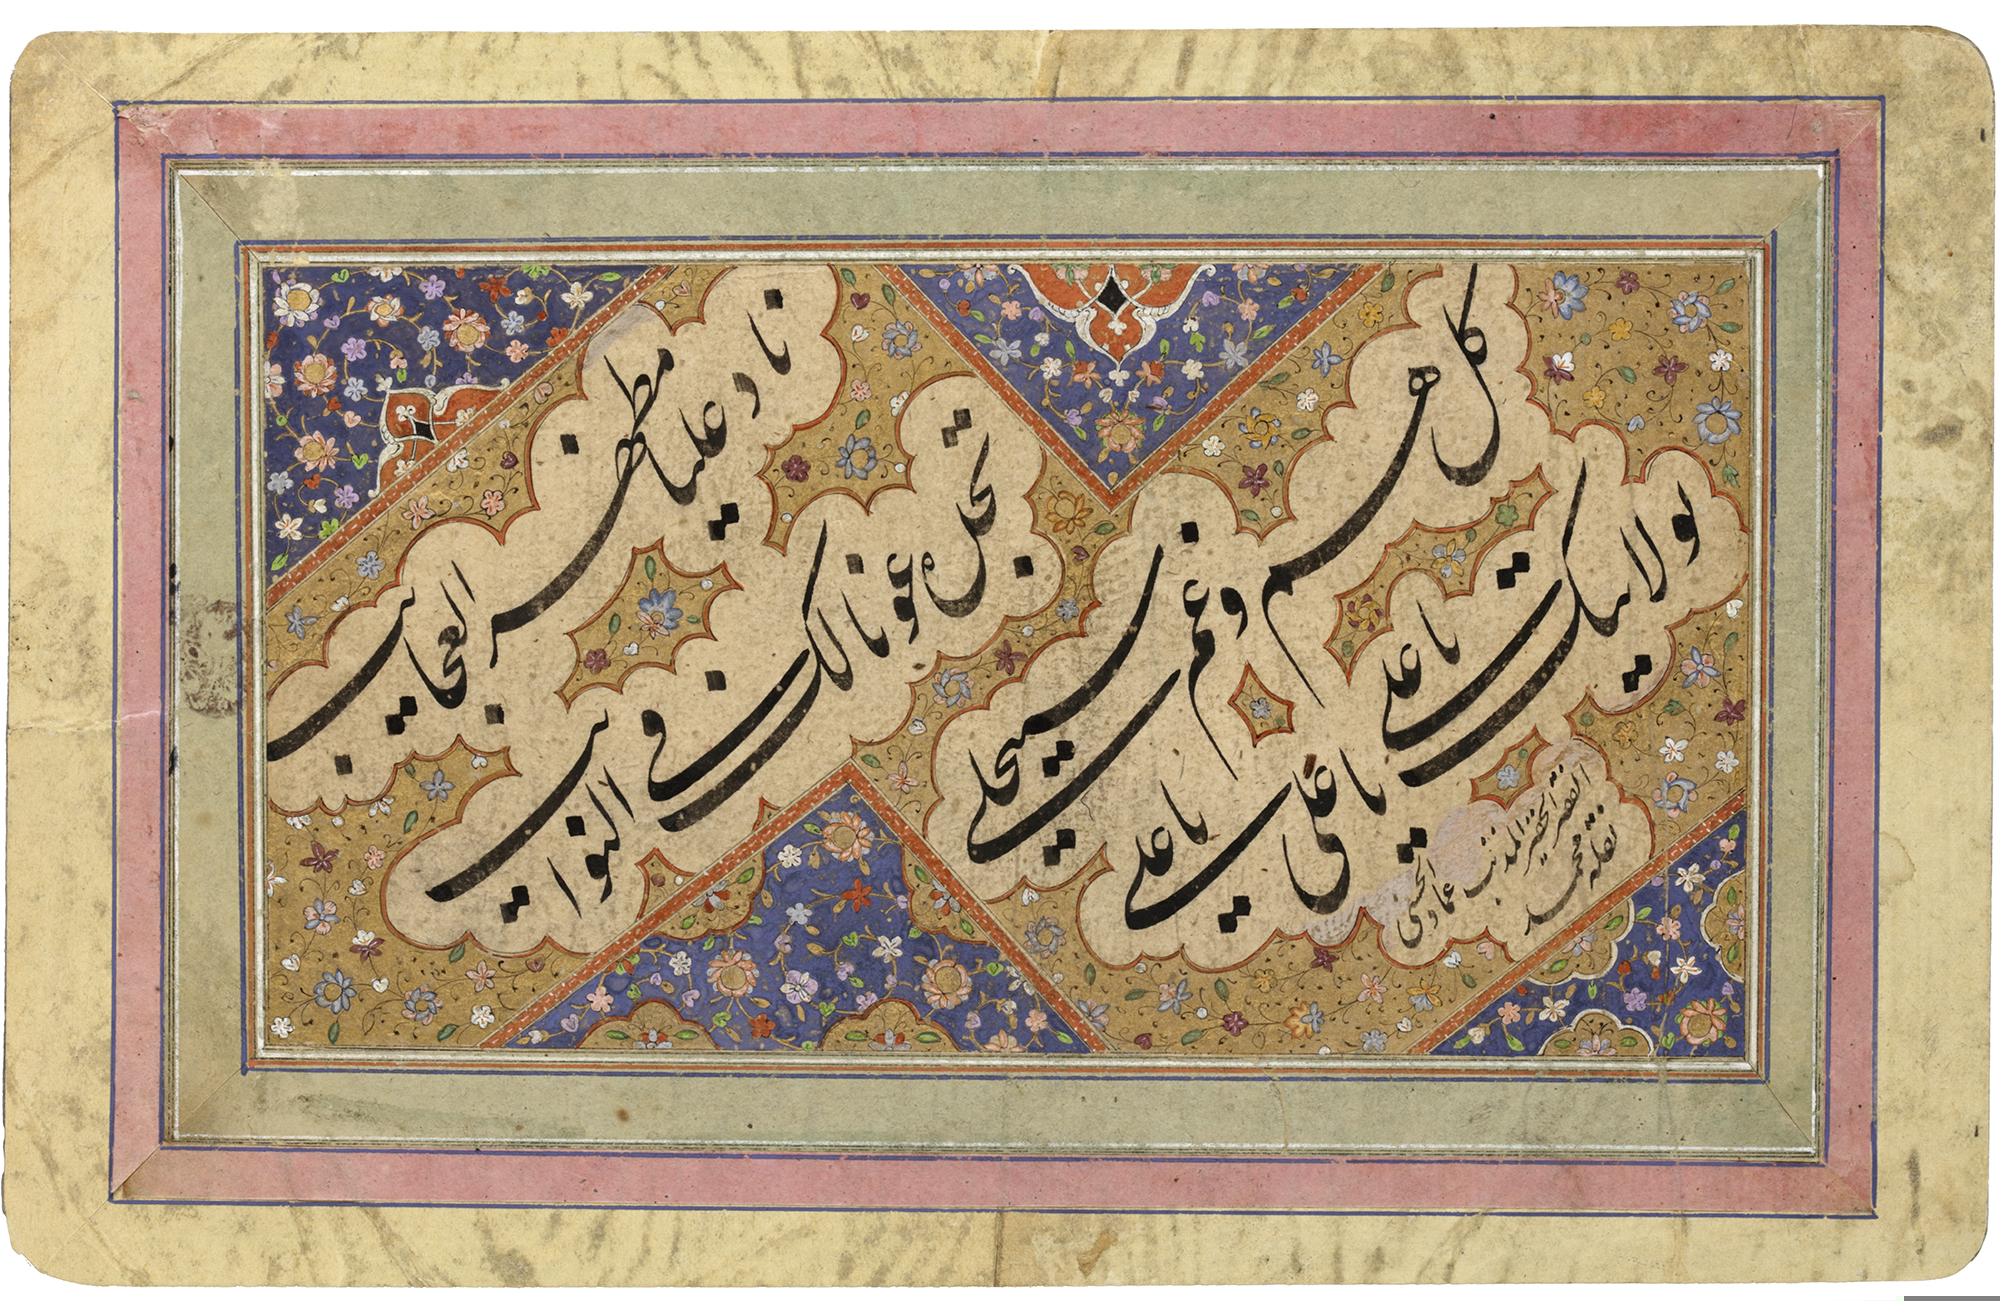 ناد علیا مظهر العجایب
تجده عونا لک فی النوایب
کل هم و غم سینجلی
بولایتک یا علی یا علی یا علی
الفقیر الحقیر المذنب عماد الحسنی
نقله محمد